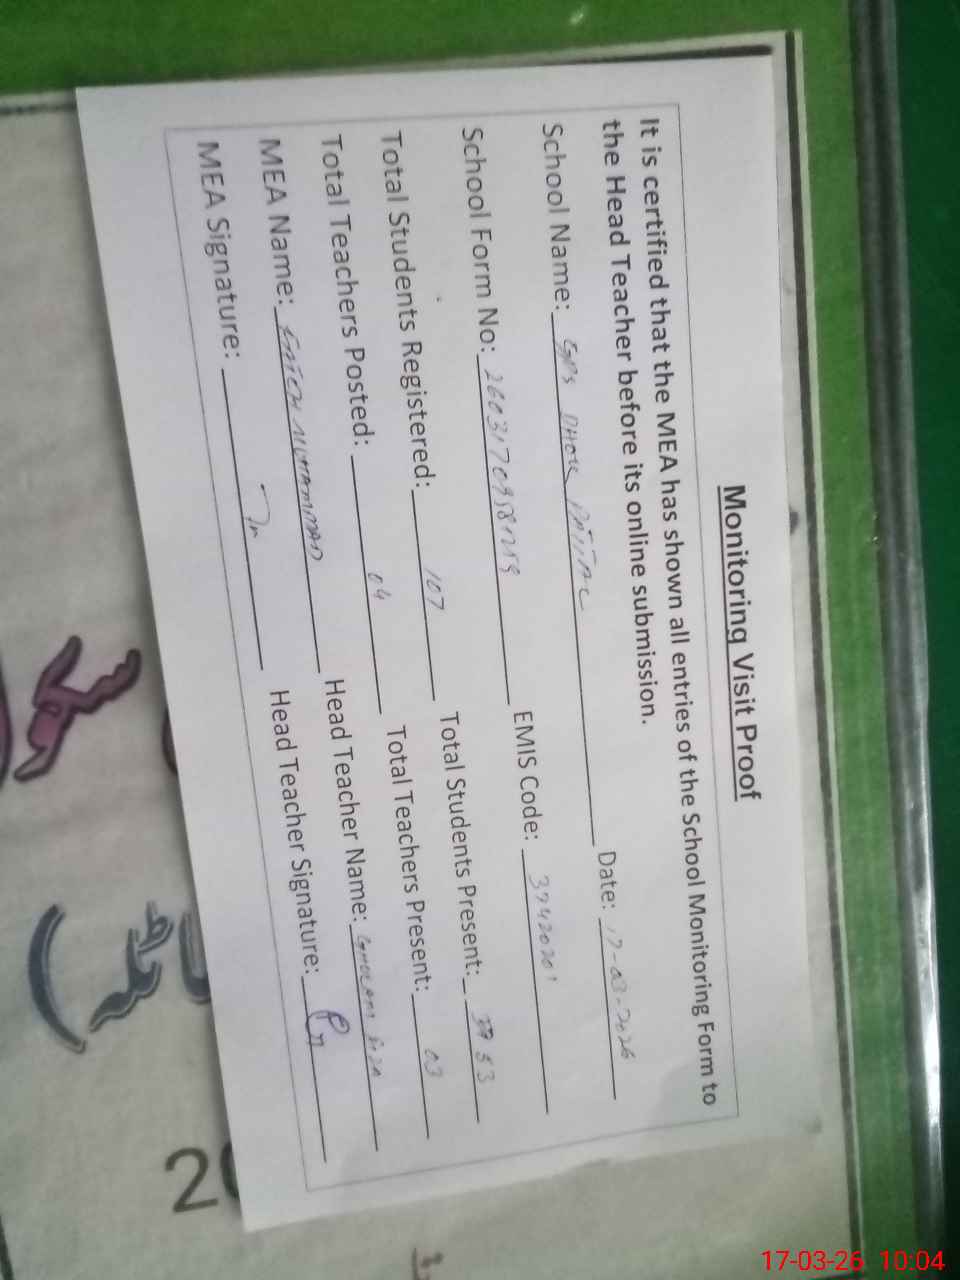 Monitoring Visit Proof
It is certified that the MEA has shown all entries of the School Monitoring Form to
the Head Teacher before its online submission.
School Name: GPS DHOK Date: 17-03-2026
School Form No: EMIS Code: 37420201
Total Students Registered: 107 Total Students Present: 53
Total Teachers Posted: 04 Total Teachers Present: 03
MEA Name: MUHAMMAD Head Teacher Name: GHULAM
MEA Signature: Head Teacher Signature:
2
17-03-26 10:04